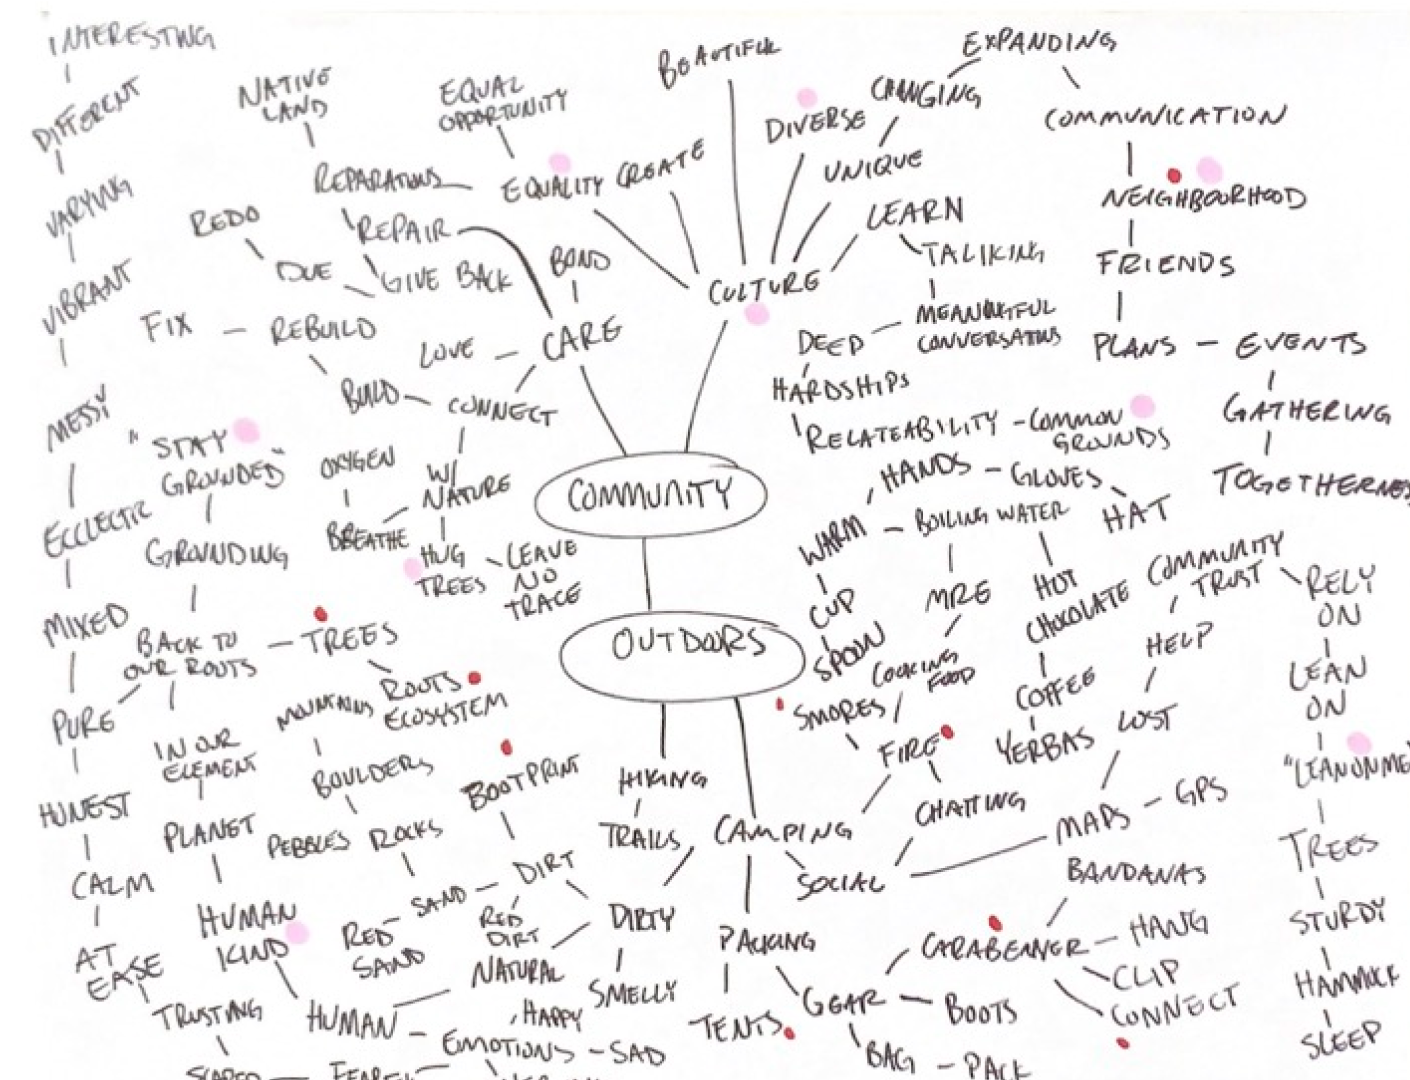 INTERESTING
DIFFERENT
VARYING
VIBRANT
MESSY
ECCLECTIC
MIXED
PURE
HONEST
CALM
AT
EASE
TRUSTING
SCARED
FEARFUL
NATIVE
LAND
REPARATIONS
EQUAL
OPPORTUNITY
EQUALITY
CREATE
BEAUTIFUL
DIVERSE
UNIQUE
CHANGING
EXPANDING
COMMUNICATION
NEIGHBOURHOOD
FRIENDS
PLANS - EVENTS
GATHERING
TOGETHERNES
LEARN
TALIKING
MEANINGFUL
CONVERSATIONS
DEEP
HARDSHIPS
RELATEABILITY - COMMON
GROUNDS
CULTURE
REDO
DUE
REPAIR
GIVE BACK
BOND
FIX - REBUILD
LOVE - CARE
BUILD - CONNECT
W/
NATURE
OXYGEN
BREATHE
HUG
TREES
LEAVE
NO
TRACE
"STAY
GROUNDED"
GROUNDING
BACK TO
OUR ROOTS
TREES
ROOTS
ECOSYSTEM
COMMUNITY
OUTDOORS
IN OUR
ELEMENT
PLANET
HUMAN
KIND
HUMAN - EMOTIONS - SAD
HAPPY
MOUNTAINS
BOULDERS
PEBBLES
ROCKS
SAND
RED
SAND
BOOTPRINT
DIRT
RED
DIRT
NATURAL
DIRTY
SMELLY
HIKING
TRAILS
CAMPING
SOCIAL
PACKING
TENTS
GEAR
BOOTS
BAG - PACK
CARABEANER
BANDANAS
HANG
CLIP
CONNECT
CHATTING
FIRE
SMORES
COOKING
FOOD
MRE
BOILING WATER
WARM
HANDS - GLOVES
HAT
CUP
SPOON
HOT
CHOCOLATE
COFFEE
YERBAS
MAPS - GPS
LOST
HELP
COMMUNITY
TRUST
RELY
ON
LEAN
ON
"LEAN ON ME
TREES
STURDY
HAMMOCK
SLEEP